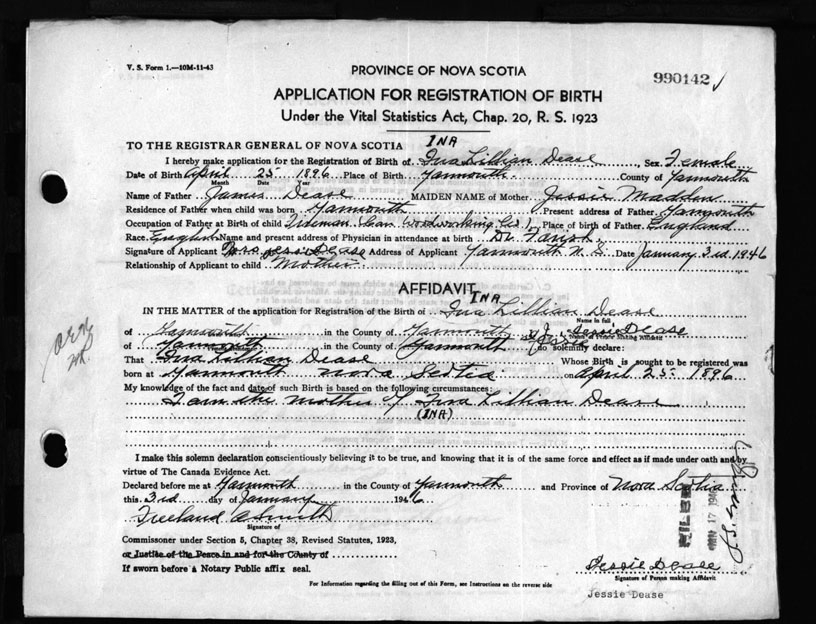 V. S. Form 1.—10M-11-43
PROVINCE OF NOVA SCOTIA
990142 ✓
APPLICATION FOR REGISTRATION OF BIRTH
Under the Vital Statistics Act, Chap. 20, R. S. 1923
TO THE REGISTRAR GENERAL OF NOVA SCOTIA INA
I hereby make application for the Registration of Birth of Ina Lillian Dease Sex Female
Date of Birth April 25 1896 Place of Birth Yarmouth County of Yarmouth
Month Date Year
Name of Father James Dease MAIDEN NAME of Mother Jessie Madden
Residence of Father when child was born Yarmouth Present address of Father Yarmouth
Occupation of Father at Birth of child Fireman (Woodworking Co.) Place of birth of Father England
Race English Name and present address of Physician in attendance at birth Dr.
Signature of Applicant Mrs Jessie Dease Address of Applicant Yarmouth N. S. Date January 3rd 1946
Relationship of Applicant to child Mother
AFFIDAVIT
INA
IN THE MATTER of the application for Registration of the Birth of Ina Lillian Dease
Name in full
of Yarmouth in the County of Yarmouth I, Jessie Dease
Name of Person Making Affidavit
of Yarmouth in the County of Yarmouth do solemnly declare:
That Ina Lillian Dease Whose Birth is sought to be registered was
born at Yarmouth Nova Scotia on April 25 1896
My knowledge of the fact and date of such Birth is based on the following circumstances:
I am the mother of Ina Lillian Dease
(INA)
I make this solemn declaration conscientiously believing it to be true, and knowing that it is of the same force and effect as if made under oath and by
virtue of The Canada Evidence Act.
Declared before me at Yarmouth in the County of Yarmouth and Province of Nova Scotia
this 3rd day of January 1946
Freeland A Smith
Signature of
Commissioner under Section 5, Chapter 38, Revised Statutes, 1923,
or Justice of the Peace in and for the County of
If sworn before a Notary Public affix seal.
FILED
JAN 17 1946
Jessie Dease
Signature of Person making Affidavit
For Information regarding the filling out of this Form, see Instructions on the reverse side
Jessie Dease